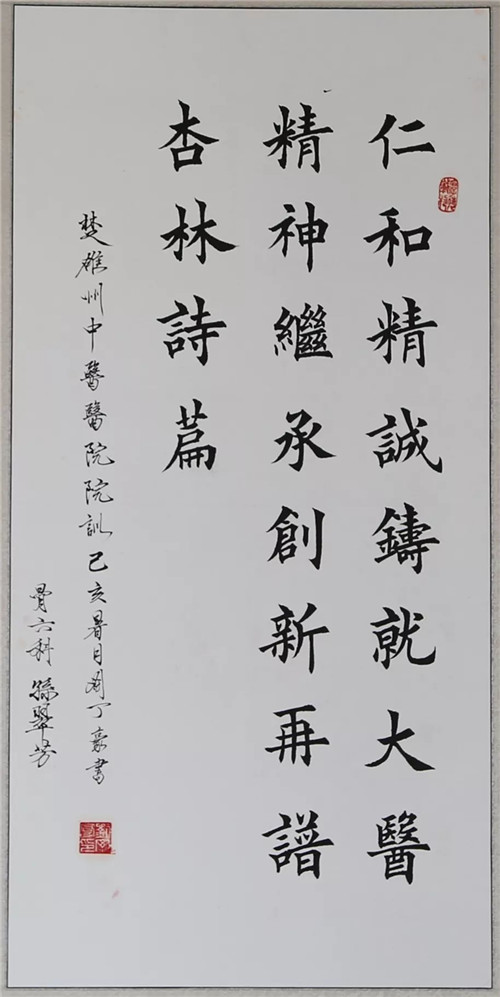 仁和精誠鑄就大醫
精神繼承創新再譜
杏林詩篇
楚雄州中醫醫院院訓己亥暑月周丁豪書
骨六科孫翠芳